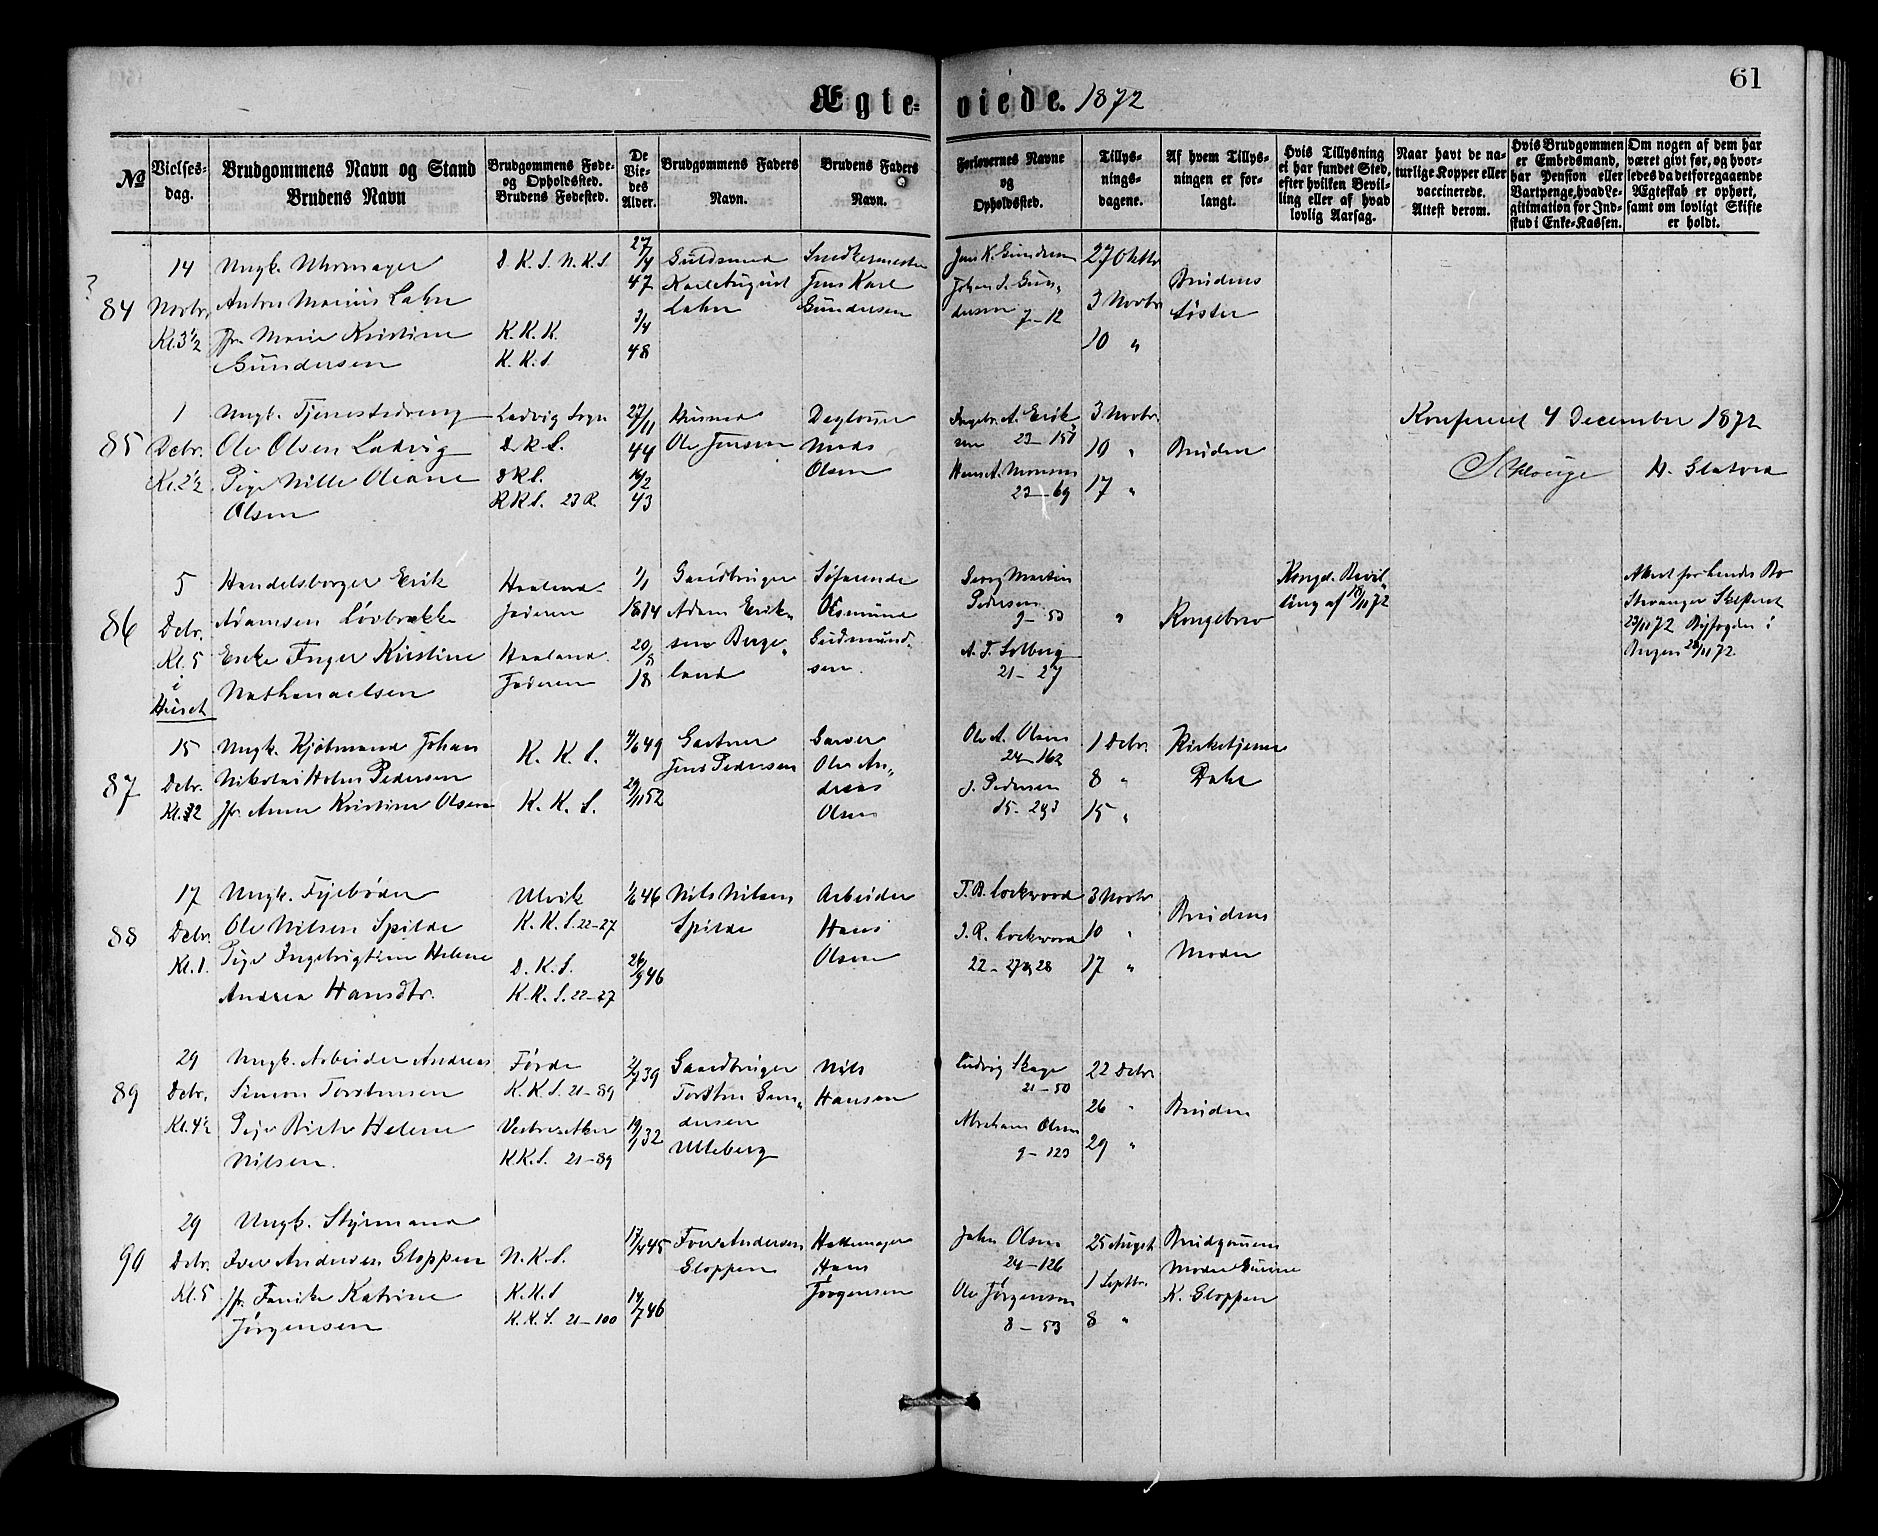 61
Ægte= viede. 1872
№
Vielses-
dag.
Brudgommens Navn og Stand
Brudens Navn
Brudgommens Føde-
og Opholdssted.
Brudens Fødested.
De
Vie-
des
Alder.
Brudgommens Faders
Navn.
Brudens Faders
Navn.
Forlovernes Navne
og
Opholdssted.
Tillys-
nings-
dagene.
Af hvem Tillys-
ningen er for-
langt.
Hvis Tillysning
ei har fundet Sted,
efter hvilken Bevil-
ling eller af hvad
lovlig Aarsag.
Naar havt de na-
turlige Kopper eller
vaccinerede.
Attest derom.
Hvis Brudgommen
er Embedsmand,
har Pension eller
Vartpenge, hvad Le-
gitimation for Ind-
skud i Enke-Kassen.
Om nogen af dem har
været givt før, og hvor-
ledes da det foregaaende
Ægteskab er ophørt,
samt om lovligt Skifte
er holdt.
?
84
14
Novbr.
Kl. 3½
Ungk. Uhrmager
Anton Marius Lahn
Jfr. Marie Kristine
Gundersen
D. K. S. N. K. S
K. K. K.
K. K. S.
27/4
47
3/4
48
Guldsmed
Karl August
Lahn
Snedkermester
Jens Karl
Gundersen
Jens K. Gundersen
Johan S. Gun„
dersen
7–12
27 Oktbr
3 Novbr
10 „
Brudens
Søster
85
1
Decbr.
Kl. 2½
Ungk. Tjenestedreng
Ole Olsen Ladvig
Pige Nille Oliane
Olsen
Ladvig Sogn
D. K. S.
D K S.
K K S. 23 R.
27/11
44
16/2
43
Husmd
Ole Jensen
Daglønner
Mads
Olsen
Ingebr. A. Erik„
sen 23–151
Hans A. Monsen
23–69
3 Novbr.
10 „
17 „
Bruden
Konfereret 4 December 1872
86
5
Dcbr.
Kl. 5
i
Huset
Handelsborger Erik
Adamsen Løvbrække
Enke Inger Kristine
Nathanaelsen
Haaland
Jæderen
Haaland
Jæderen
1/1
1814
20/8
18
Gaardbruger
Adam Erik„
sen Berge„
land
Søfarende
Osmund
Gudmund„
sen.
Georg Martin
Pedersen
9–53
A. T. Solberg
21–27
„
Kongebrev
Kongel. Bevil„
ling af 19/11 72
Attest for hendes Bo
Stavanger Skifteret
23/11 72 Byfogden i
Bergen 28/11 72.
87
15
Decbr.
Kl. 12
Ungk. Kjøbmand Johan
Nikolai Holm Pedersen
Jfr. Anna Kristine Olsen
K. K. S.
K. K. S.
4/6 49
29/11 52
Gartner
Jens Pedersen
Garver
Ole An„
dreas
Olsen
Ole A. Olsen
24–162
J. Pedersen
15–293
1 Decbr.
8 „
15 „
Kirketjener
Dahl
88
17
Decbr.
Kl. 1.
Ungk. Fyrbøder
Ole Nilsen Spilde
Pige Ingebrigtine Helene
Andrea Hansdtr.
Ulvik
K. K. S. 22–27
D. K. S.
K. K. S. 22–27
1/6 46
26/9 46
Nils Nilsen
Spilde
Arbeider
Hans
Olsen
T. B. Lockwood
J. R. Lockwood
22–27 og 28
3 Novbr
10 „
17 „
Brudens
Moder
89
29
Decbr.
Kl. 4½
Ungk. Arbeider Andreas
Simon Torstensen
Pige Birte Helene
Nilsen.
Førde
K. K. S. 21–89
Vestre Aker
K K. S. 21–89
2/9 39
19/1 32
Gaardbruger
Torsten Gun„
dersen
Ulleberg
Nils
Hansen
Ludvig Skage
21–50
Abraham Olsen
9–123
22 Decbr.
26 „
29 „
Bruden
90
29
Decbr.
Kl. 5
Ungk. Styrmand
Iver Andersen Gloppen
Jfr. Fanike Katrine
Jørgensen
N. K. S.
K. K. S
K. K. S. 21–100
17/4 45
14/7 46
Iver Andersen
Gloppen
Hattemager
Hans
Jørgensen
John Olsen
24–126
Ole Jørgensen
8–53
25 August
1 Septbr.
8 „
Brudgommens
Moder
K. Gloppen